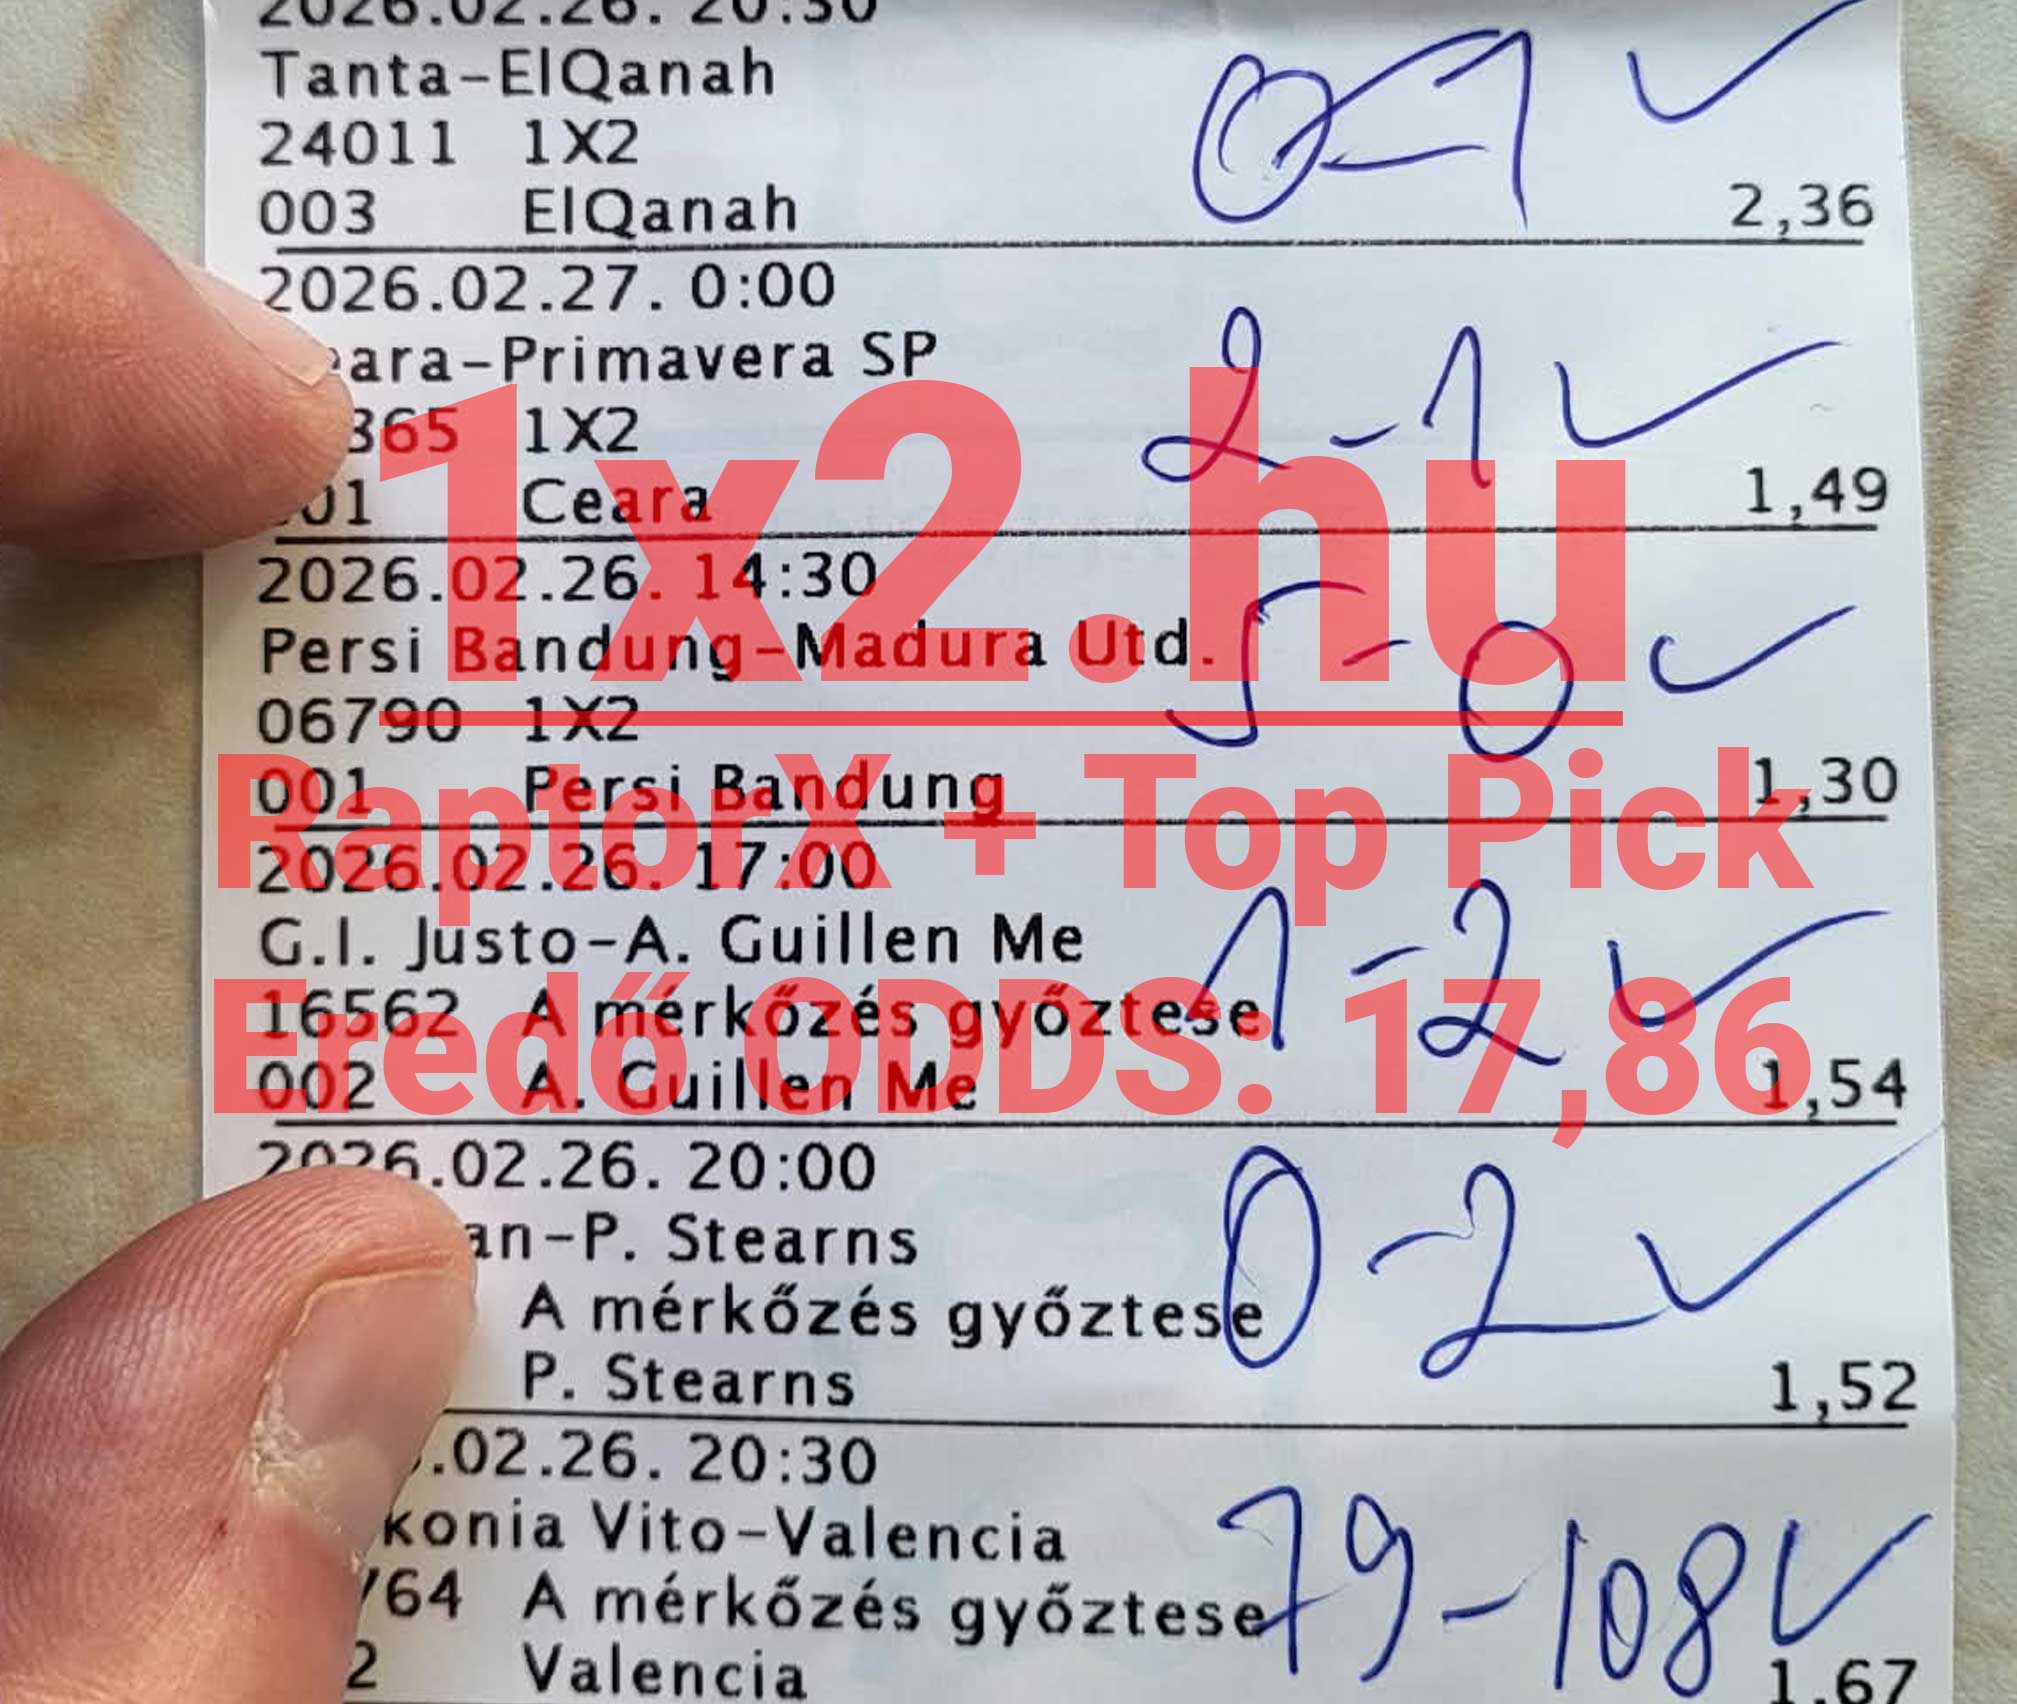 2026.02.26. 20:30
Tanta-ElQanah
24011 1X2
003 ElQanah 2,36
0-1
2026.02.27. 0:00
ara-Primavera SP
365 1X2
01 Ceara 1,49
2-1
2026.02.26. 14:30
Persi Bandung-Madura Utd.
06790 1X2
001 Persi Bandung 1,30
5-0
2026.02.26. 17:00
G.I. Justo-A. Guillen Me
16562 A mérkőzés győztese
002 A. Guillen Me 1,54
1-2
2026.02.26. 20:00
an-P. Stearns
A mérkőzés győztese
P. Stearns 1,52
0-2
.02.26. 20:30
konia Vito-Valencia
764 A mérkőzés győztese
2 Valencia 1,67
79-108
1x2.hu
RaptorX + Top Pick
Eredő ODDS: 17,86